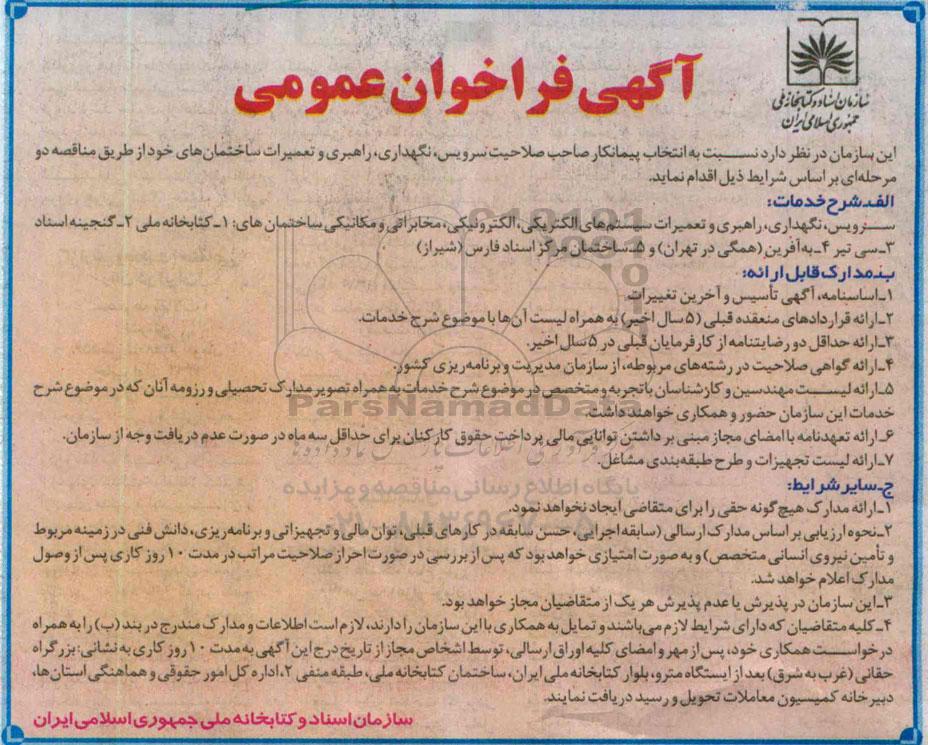 سازمان اسناد و کتابخانه ملی
جمهوری اسلامی ایران
آگهی فراخوان عمومی
این سازمان در نظر دارد نسبت به انتخاب پیمانکار صاحب صلاحیت سرویس، نگهداری، راهبری و تعمیرات ساختمان‌های خود از طریق مناقصه دو
مرحله‌ای بر اساس شرایط ذیل اقدام نماید.
الف‌ـ شرح خدمات:
سرویس، نگهداری، راهبری و تعمیرات سیستم‌های الکتریکی، الکترونیکی، مخابراتی و مکانیکی ساختمان های: ۱ـ کتابخانه ملی ۲ـ گنجینه اسناد
۳ـ سی تیر ۴ـ به آفرین (همگی در تهران) و ۵ـ ساختمان مرکز اسناد فارس (شیراز)
ب‌ـ مدارک قابل ارائه:
۱ـ اساسنامه، آگهی تأسیس و آخرین تغییرات
۲ـ ارائه قراردادهای منعقده قبلی (۵ سال اخیر) به همراه لیست آن‌ها با موضوع شرح خدمات.
۳ـ ارائه حداقل دو رضایتنامه از کارفرمایان قبلی در ۵ سال اخیر.
۴ـ ارائه گواهی صلاحیت در رشته‌های مربوطه، از سازمان مدیریت و برنامه‌ریزی کشور.
۵ـ ارائه لیست مهندسین و کارشناسان باتجربه و متخصص در موضوع شرح خدمات به همراه تصویر مدارک تحصیلی و رزومه آنان که در موضوع شرح
خدمات این سازمان حضور و همکاری خواهند داشت.
۶ـ ارائه تعهدنامه با امضای مجاز مبنی بر داشتن توانایی مالی پرداخت حقوق کارکنان برای حداقل سه ماه در صورت عدم دریافت وجه از سازمان.
۷ـ ارائه لیست تجهیزات و طرح طبقه‌بندی مشاغل.
ParsNamadData
پایگاه اطلاع رسانی مناقصه و مزایده
ج‌ـ سایر شرایط:
۱ـ ارائه مدارک هیچ گونه حقی را برای متقاضی ایجاد نخواهد نمود.
۲ـ نحوه ارزیابی بر اساس مدارک ارسالی (سابقه اجرایی، حسن سابقه در کارهای قبلی، توان مالی و تجهیزاتی و برنامه‌ریزی، دانش فنی در زمینه مربوط
و تأمین نیروی انسانی متخصص) و به صورت امتیازی خواهد بود که پس از بررسی در صورت احراز صلاحیت مراتب در مدت ۱۰ روز کاری پس از وصول
مدارک اعلام خواهد شد.
۳ـ این سازمان در پذیرش یا عدم پذیرش هر یک از متقاضیان مجاز خواهد بود.
۴ـ کلیه متقاضیان که دارای شرایط لازم می‌باشند و تمایل به همکاری با این سازمان را دارند، لازم است اطلاعات و مدارک مندرج در بند (ب) را به همراه
درخواست همکاری خود، پس از مهر و امضای کلیه اوراق ارسالی، توسط اشخاص مجاز از تاریخ درج این آگهی به مدت ۱۰ روز کاری به نشانی: بزرگراه
حقانی (غرب به شرق) بعد از ایستگاه مترو، بلوار کتابخانه ملی ایران، ساختمان کتابخانه ملی، طبقه منفی ۲، اداره کل امور حقوقی و هماهنگی استان‌ها،
دبیرخانه کمیسیون معاملات تحویل و رسید دریافت نمایند.
سازمان اسناد و کتابخانه ملی جمهوری اسلامی ایران